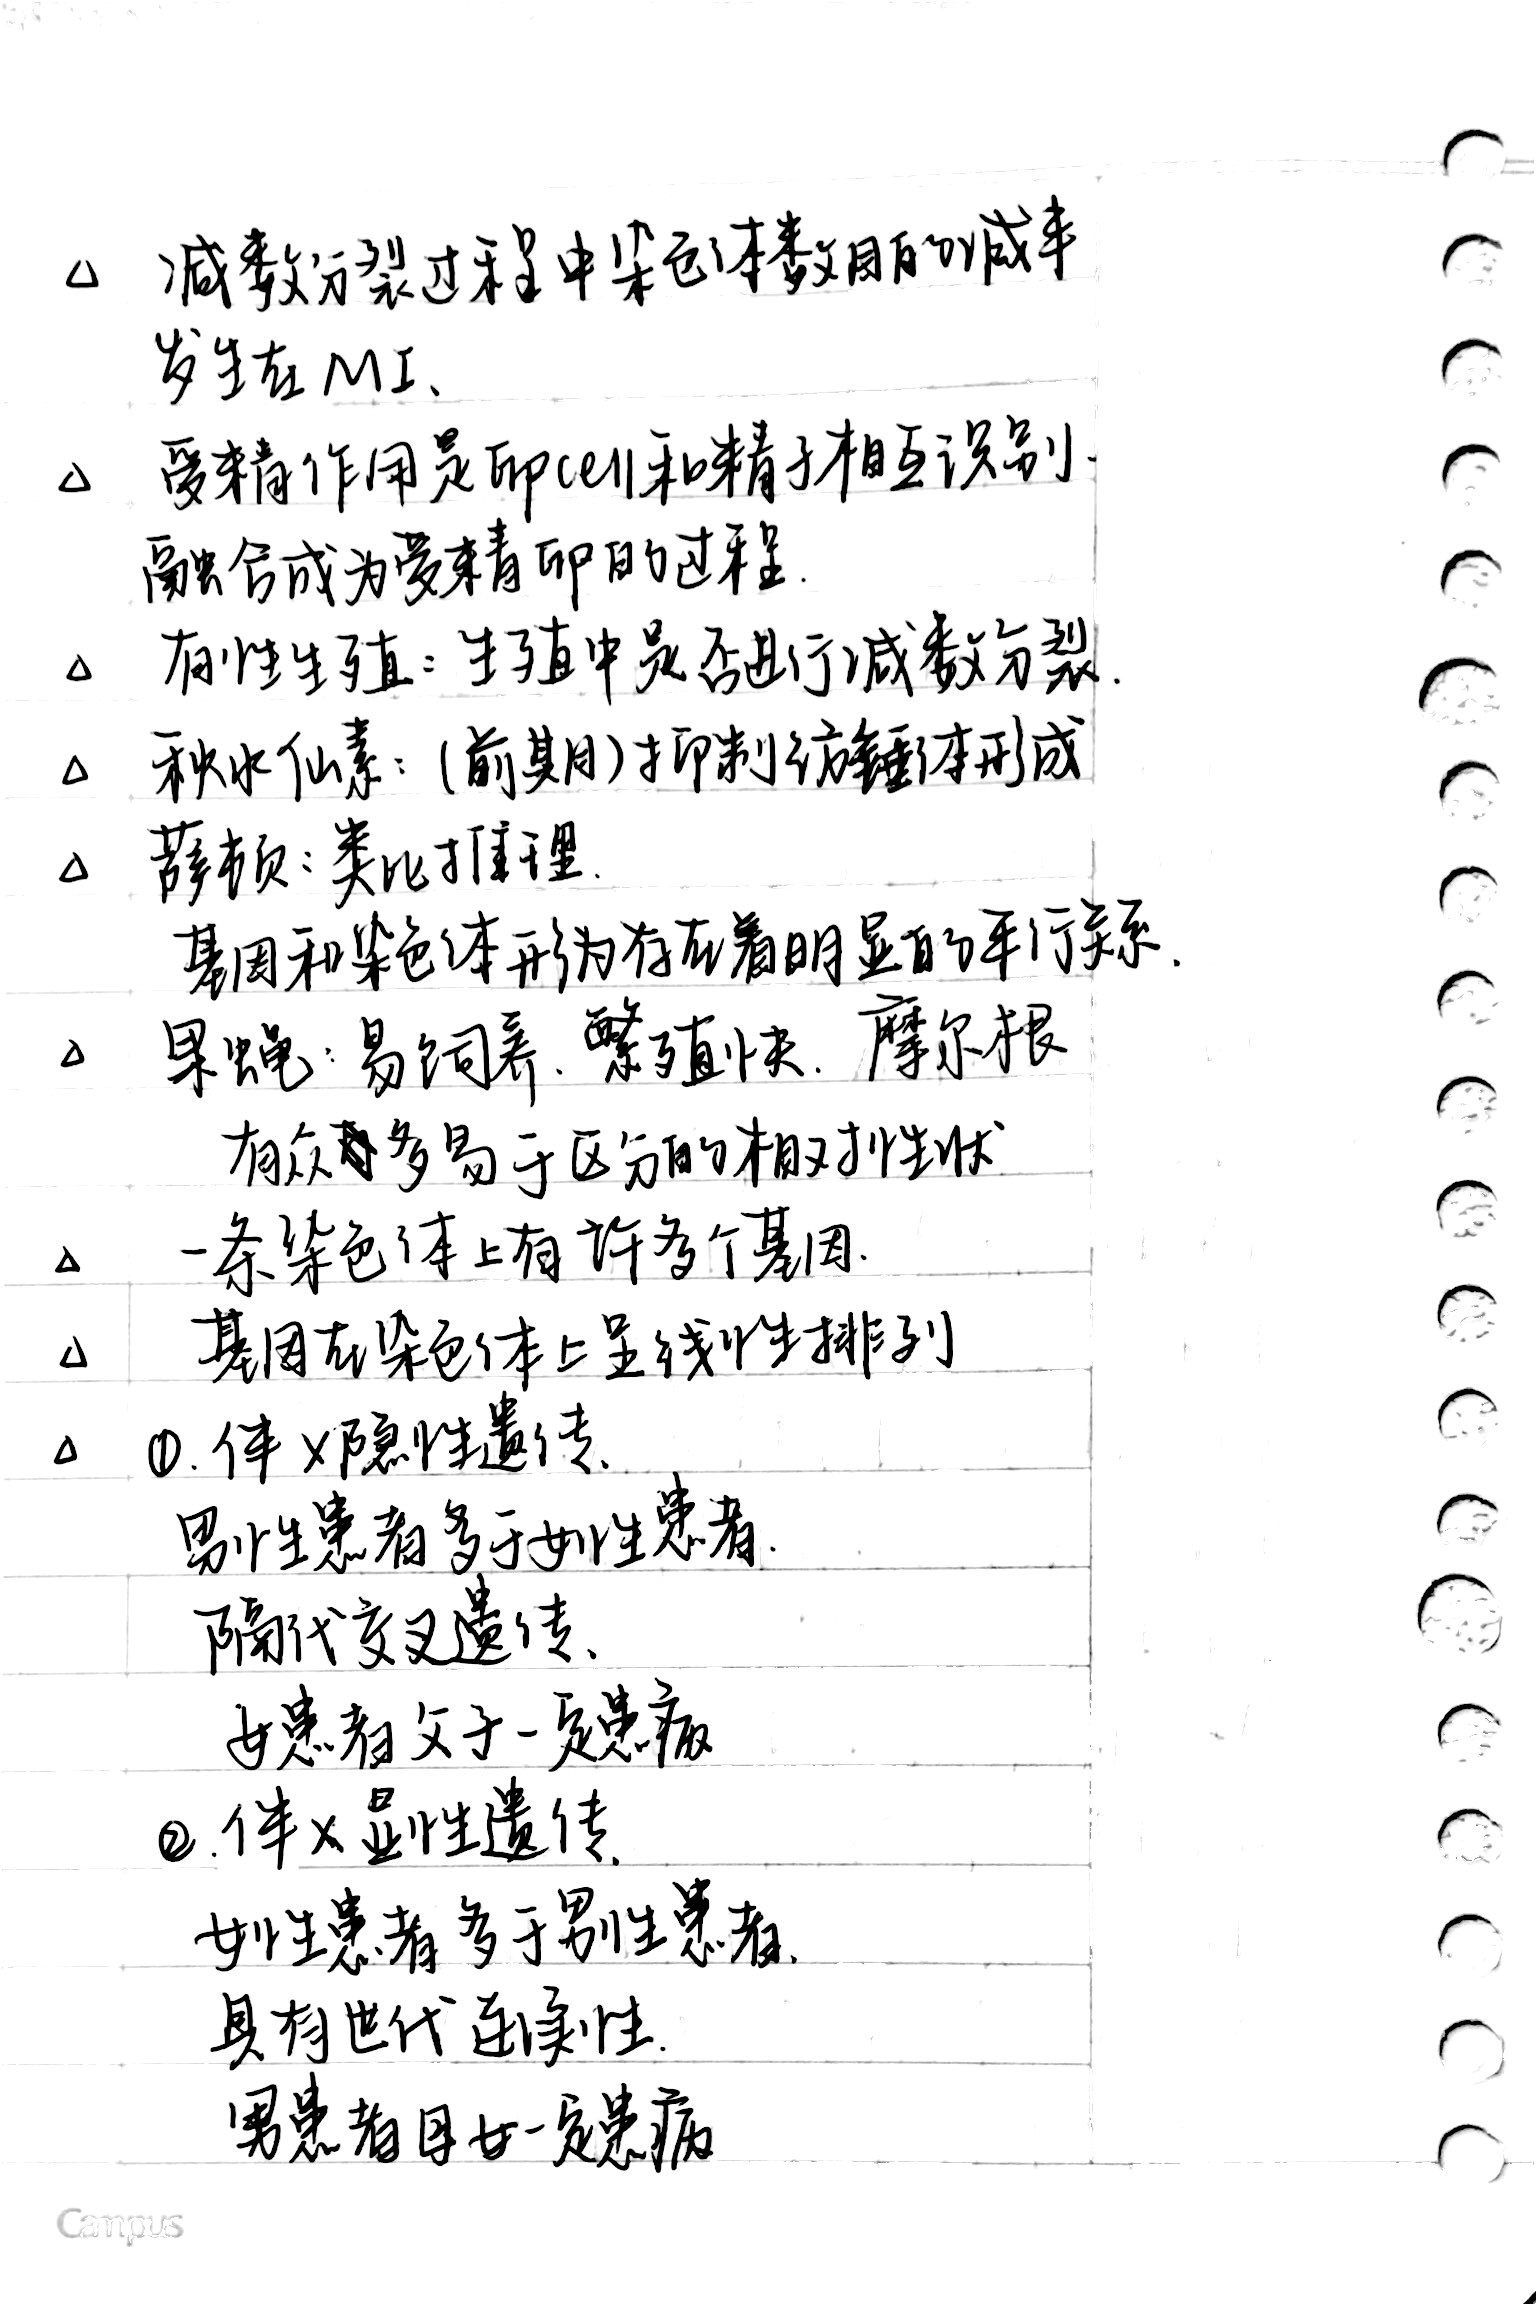 △ 减数分裂过程中染色体数目的减半
发生在MI、
△ 受精作用是卵cell和精子相互识别、
融合成为受精卵的过程.
△ 有性生殖：生殖中是否进行减数分裂.
△ 秋水仙素：(前期)抑制纺锤体形成
△ 萨顿：类比推理.
基因和染色体形为存在着明显的平行关系.
△ 果蝇：易饲养、繁殖快. 摩尔根
有众多易于区分的相对性状
△ 一条染色体上有许多个基因.
△ 基因在染色体上呈线性排列
△ ①.伴X隐性遗传.
男性患者多于女性患者.
隔代交叉遗传、
女患者父子一定患病
②.伴X显性遗传.
女性患者多于男性患者.
具有世代连续性.
男患者母女一定患病
Campus